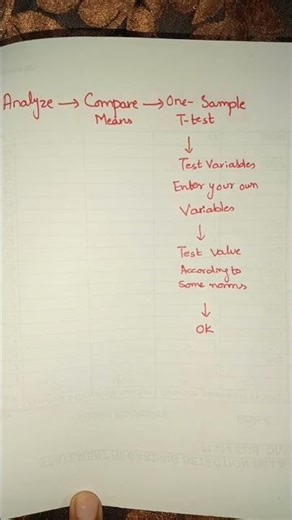 Analyze → Compare → One- Sample
Means T-test
↓
Test Variables
Enter your own
Variables
↓
Test Value
According to
Some norms
↓
OK